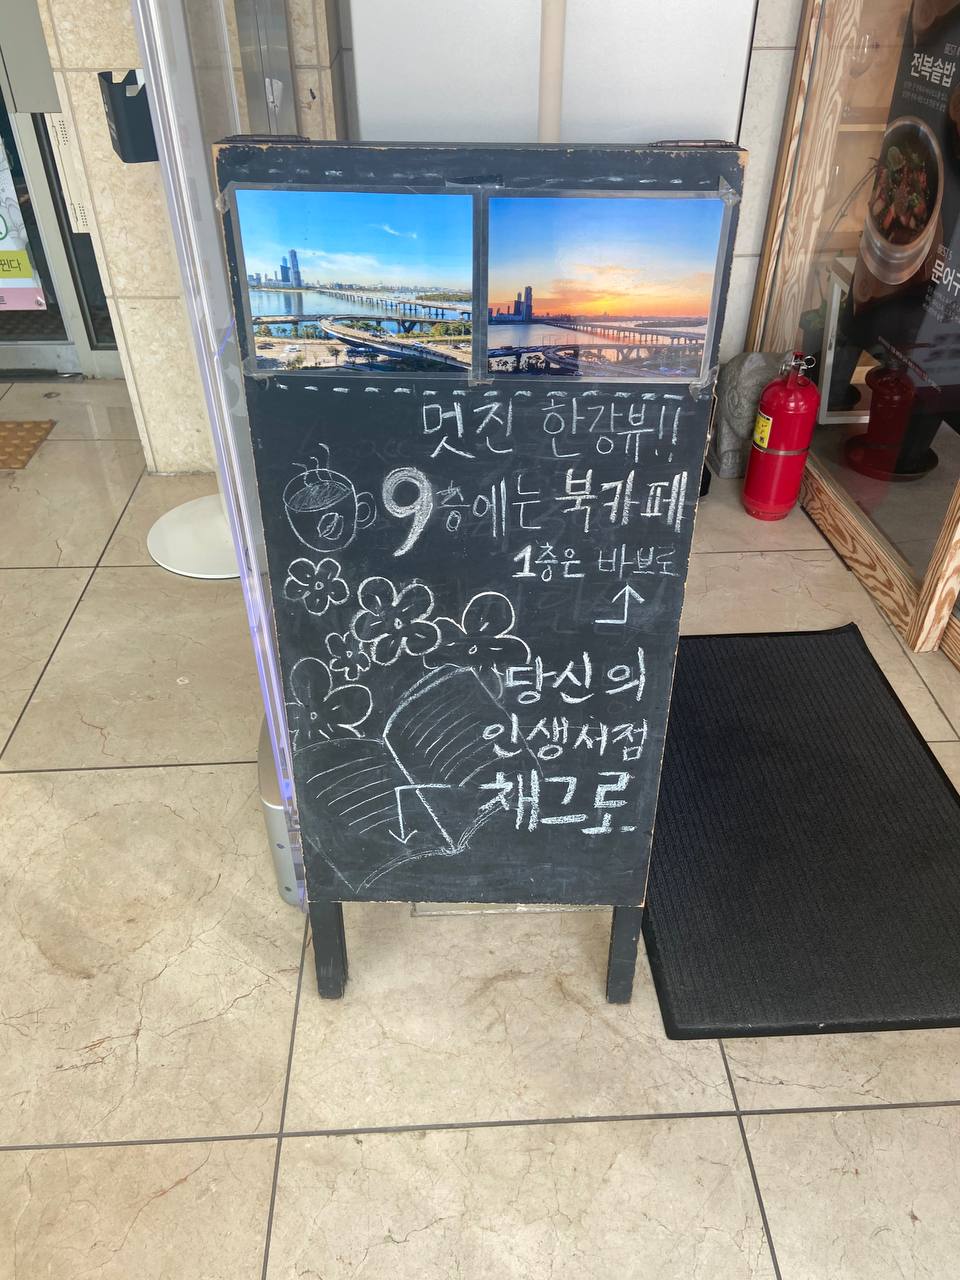 멋진 한강뷰!!
9층에는 북카페
1층은 바브로
당신의
인생서점
채그로
전복솥밥